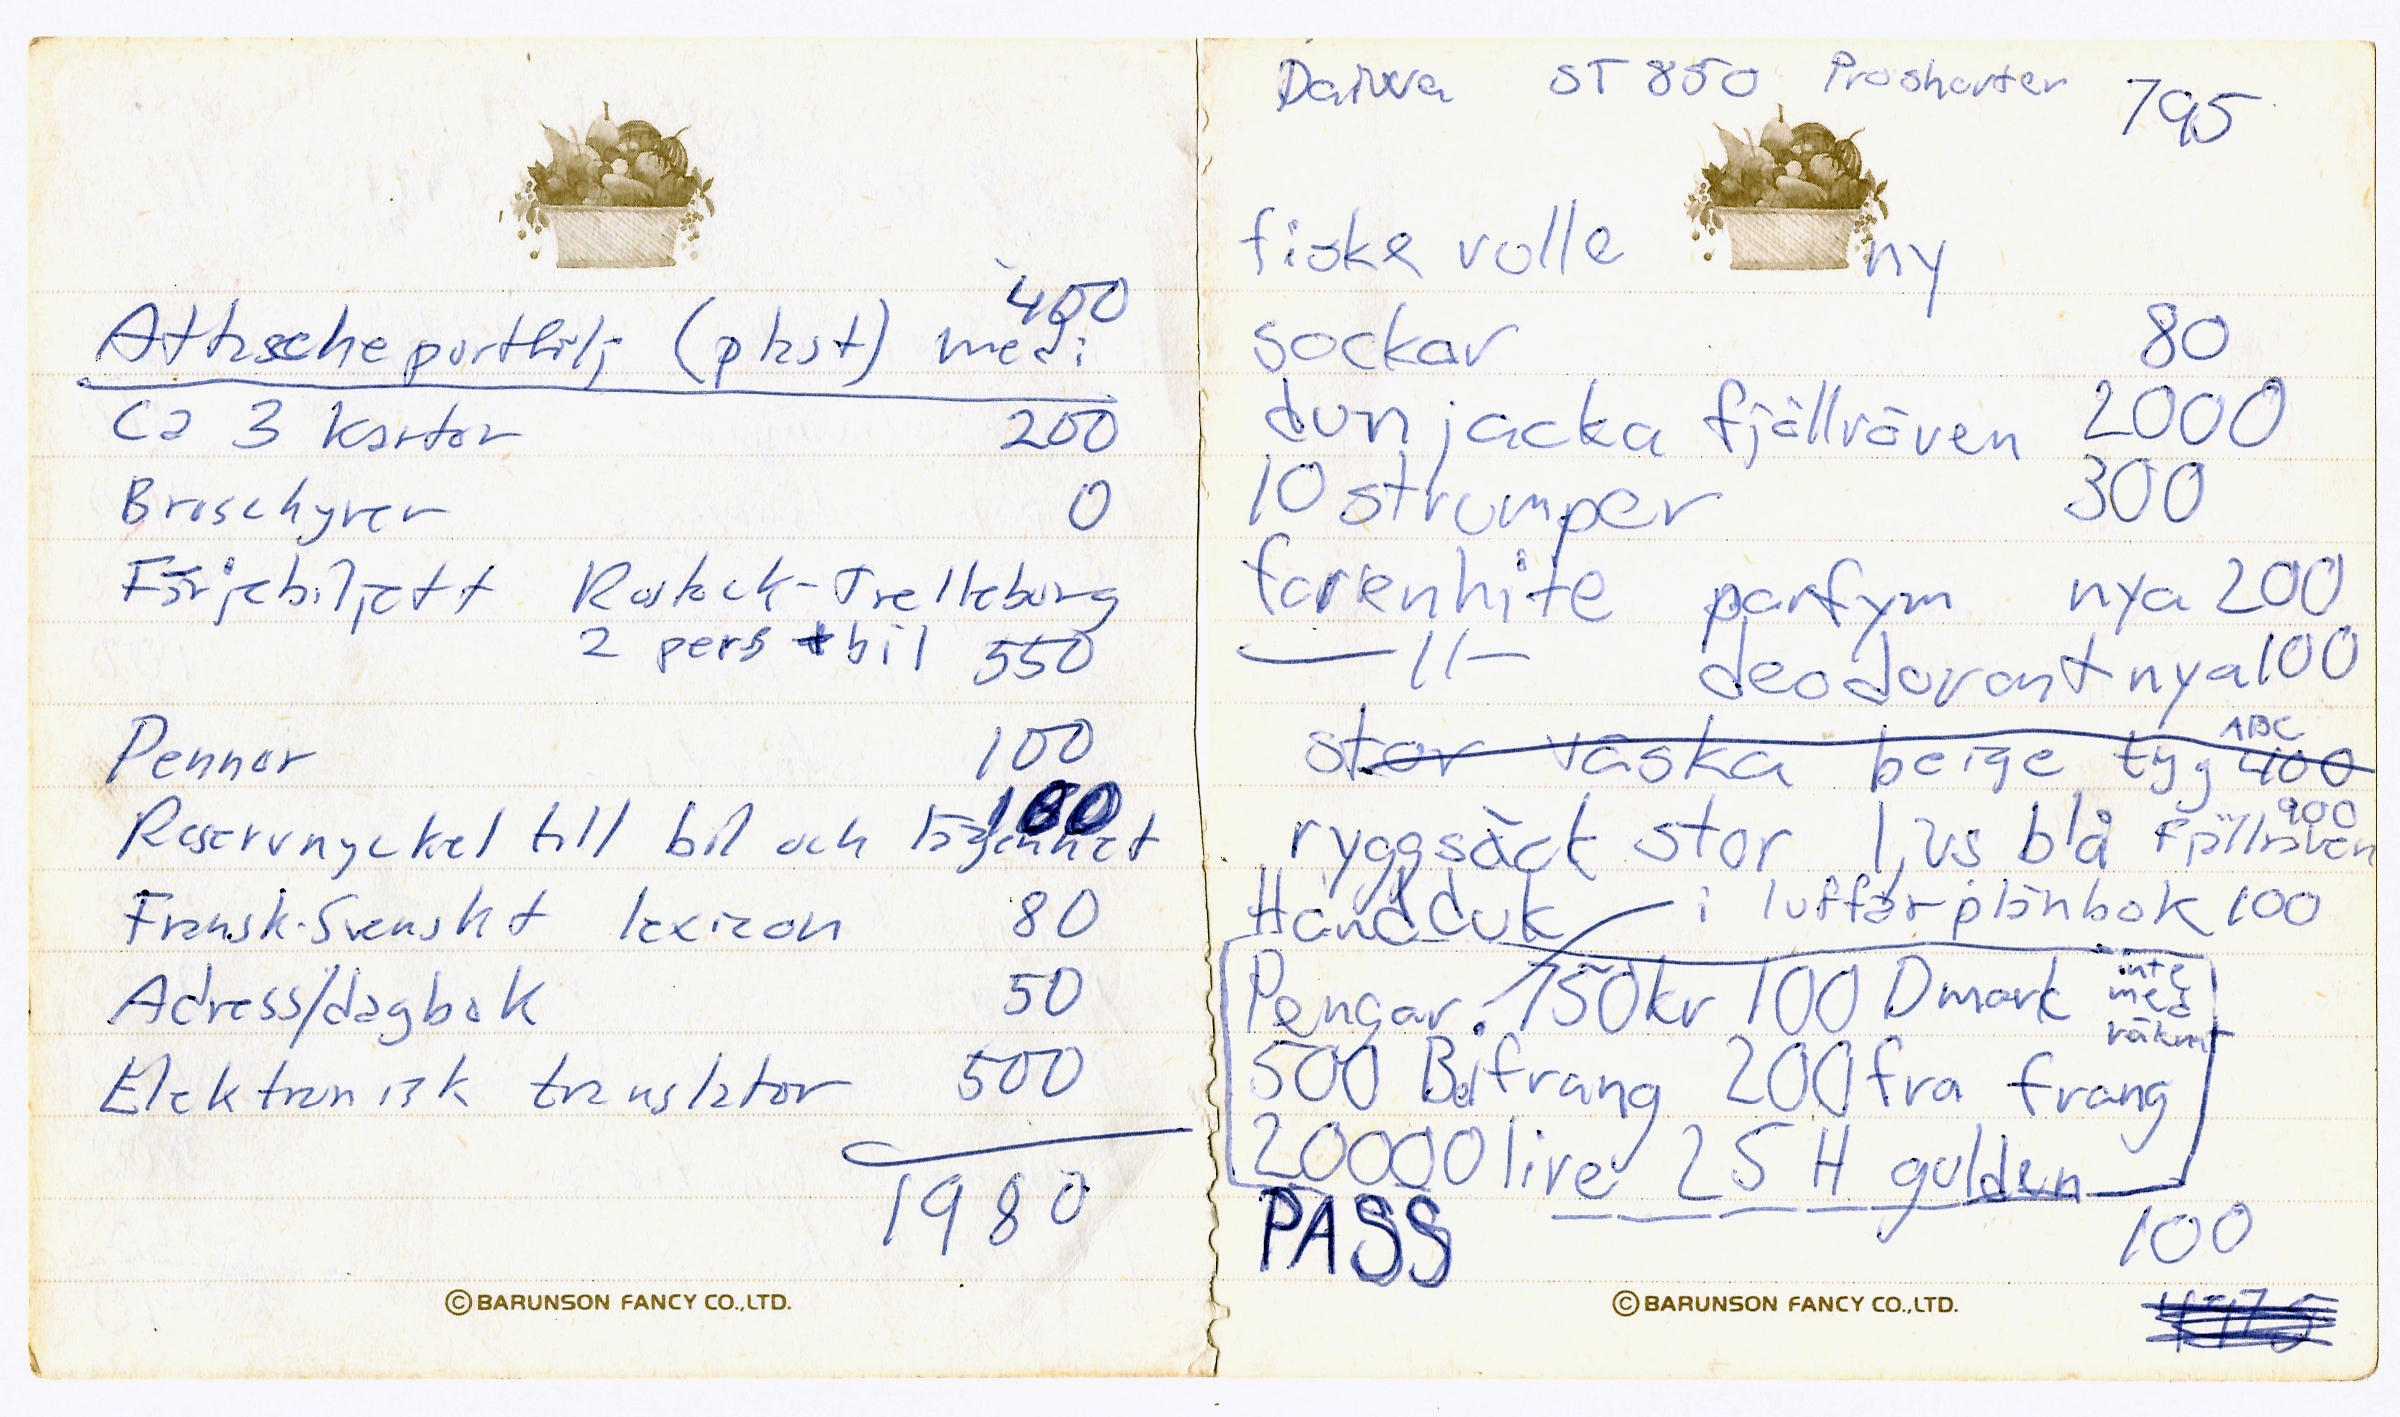 400
Attascheportfölj (plast) med i
Ca 3 kartor 200
Broschyrer 0
Färjebiljett Rostock-Trelleborg
2 pers + bil 550
Pennor 100
Reservnyckel till bil och lägenhet 100
Fransk-Svenskt lexicon 80
Adress/dagbok 50
Elektronisk translator 500
1980
© BARUNSON FANCY CO.,LTD.
Daiwa ST 850 Proshorter 795
fiske rulle ny
sockar 80
dun jacka fjällräven 2000
10 strumper 300
farienhite parfym nya 200
—11— deodorant nya 100
stor väska beige tyg ABC 400
ryggsäck stor ljus blå Fjällräven 900
Handduk i luffarplånbok 100
Pengar. 750kr 100 Dmark inte
med
räknat
500 Belfrang 200 fra frang
20000 lire 25 H gulden
PASS 100
© BARUNSON FANCY CO.,LTD.